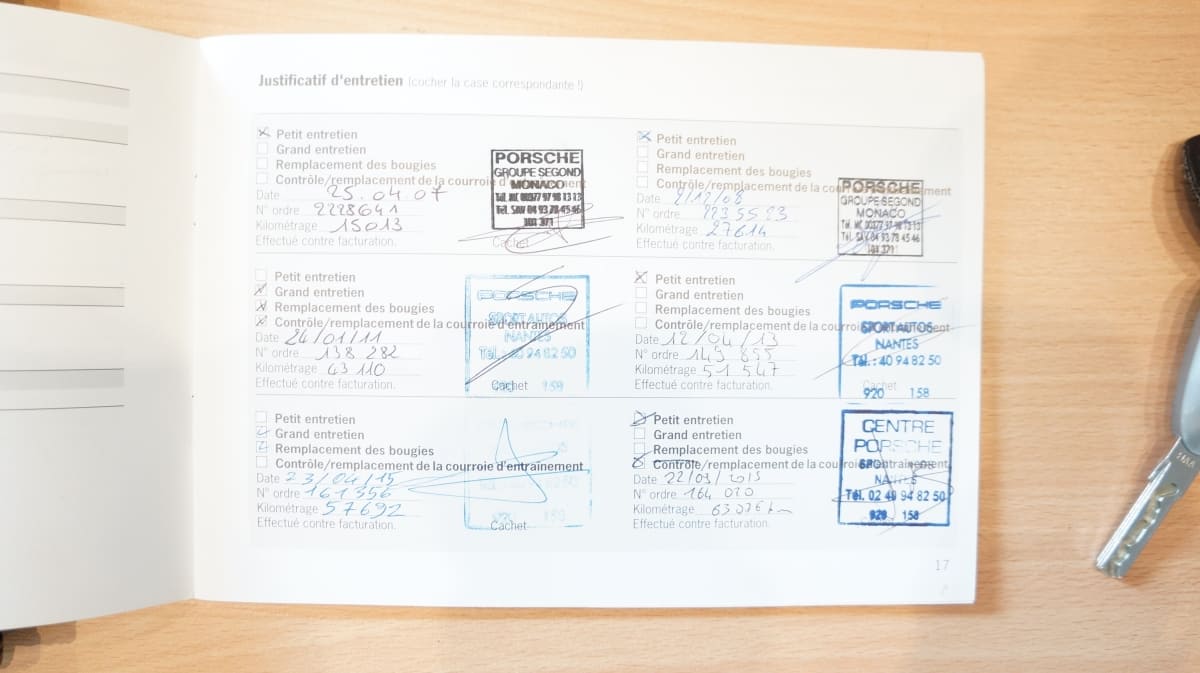 Justificatif d'entretien (cocher la case correspondante !)
Petit entretien
Grand entretien
Remplacement des bougies
Contrôle/remplacement de la courroie d'entraînement
Date 25.04.07
N° ordre 2228641
Kilométrage 15013
Effectué contre facturation.
Cachet
PORSCHE
GROUPE SEGOND
MONACO
Tél. MC 00377 97 98 13 13
Tél. SAV 04 93 78 45 46
Petit entretien
Grand entretien
Remplacement des bougies
Contrôle/remplacement de la courroie d'entraînement
Date
N° ordre 2235523
Kilométrage 27614
Effectué contre facturation.
PORSCHE
GROUPE SEGOND
MONACO
Tél. MC 00377 97 98 13 13
Tél. SAV 04 93 78 45 46
Petit entretien
Grand entretien
Remplacement des bougies
Contrôle/remplacement de la courroie d'entraînement
Date 24/01/11
N° ordre 138 282
Kilométrage 43 110
Effectué contre facturation.
Cachet
PORSCHE
SPORT AUTOS
NANTES
Tél. : 40 94 82 50
158
Petit entretien
Grand entretien
Remplacement des bougies
Contrôle/remplacement de la courroie d'entraînement
Date 12/04/13
N° ordre 149 855
Kilométrage 51 547
Effectué contre facturation.
Cachet
PORSCHE
SPORT AUTOS
NANTES
Tél. : 40 94 82 50
920 158
Petit entretien
Grand entretien
Remplacement des bougies
Contrôle/remplacement de la courroie d'entraînement
Date 23/04/15
N° ordre 161356
Kilométrage 57692
Effectué contre facturation.
Cachet
158
Petit entretien
Grand entretien
Remplacement des bougies
Contrôle/remplacement de la courroie d'entraînement
Date
N° ordre 164 020
Kilométrage 63076 km
Effectué contre facturation.
CENTRE
PORSCHE
NANTES
Tél. 02 40 94 82 50
920 158
17